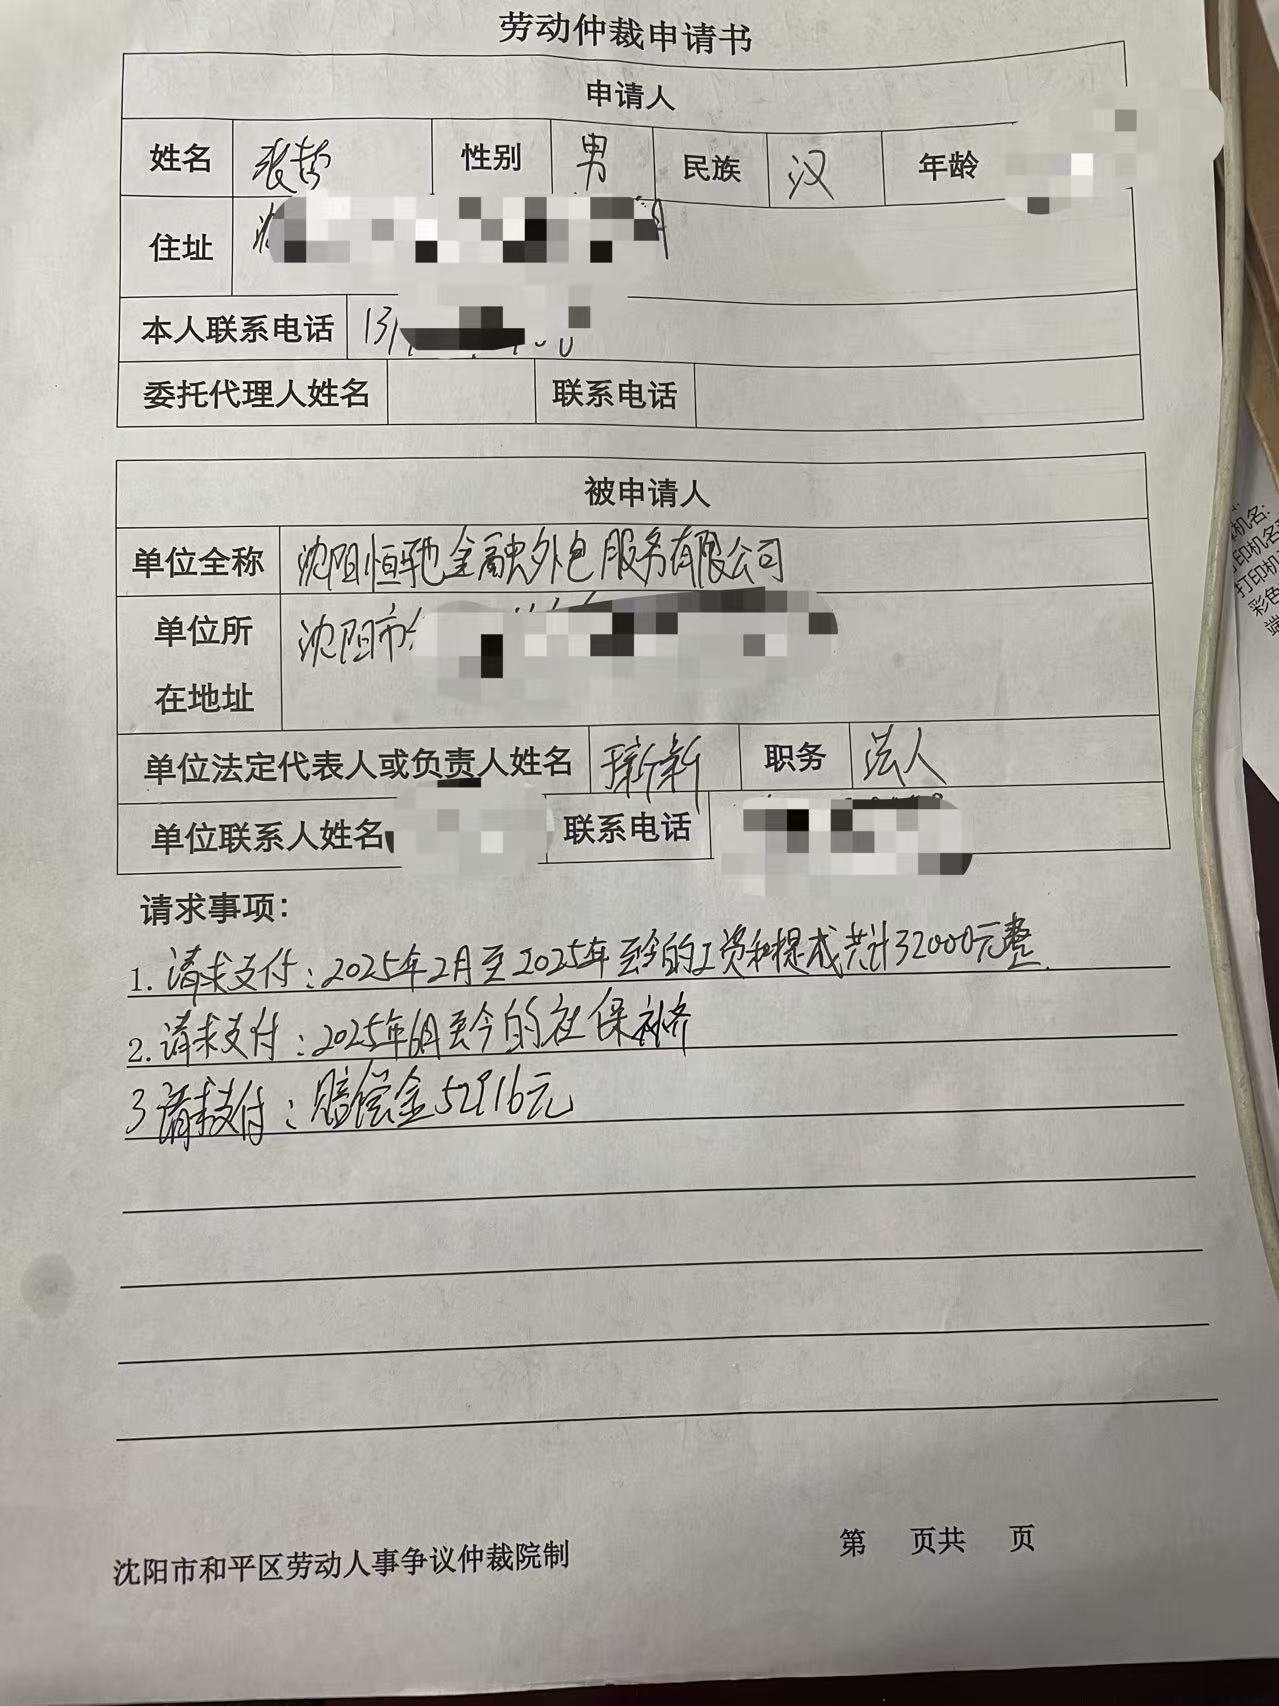 劳动仲裁申请书
申请人
姓名 性别 男 民族 汉 年龄
住址
本人联系电话 131
委托代理人姓名 联系电话
被申请人
单位全称 沈阳恒驰金融外包服务有限公司
单位所 沈阳市
在地址
单位法定代表人或负责人姓名 职务 法人
单位联系人姓名 联系电话
请求事项：
1. 请求支付：2025年2月至2025年至今的工资和提成共计32000元整.
2. 请求支付：2025年6月至今的社保补齐
3 请求支付：赔偿金52916元
沈阳市和平区劳动人事争议仲裁院制 第 页共 页
机名:
印机名
打印机
彩色
端